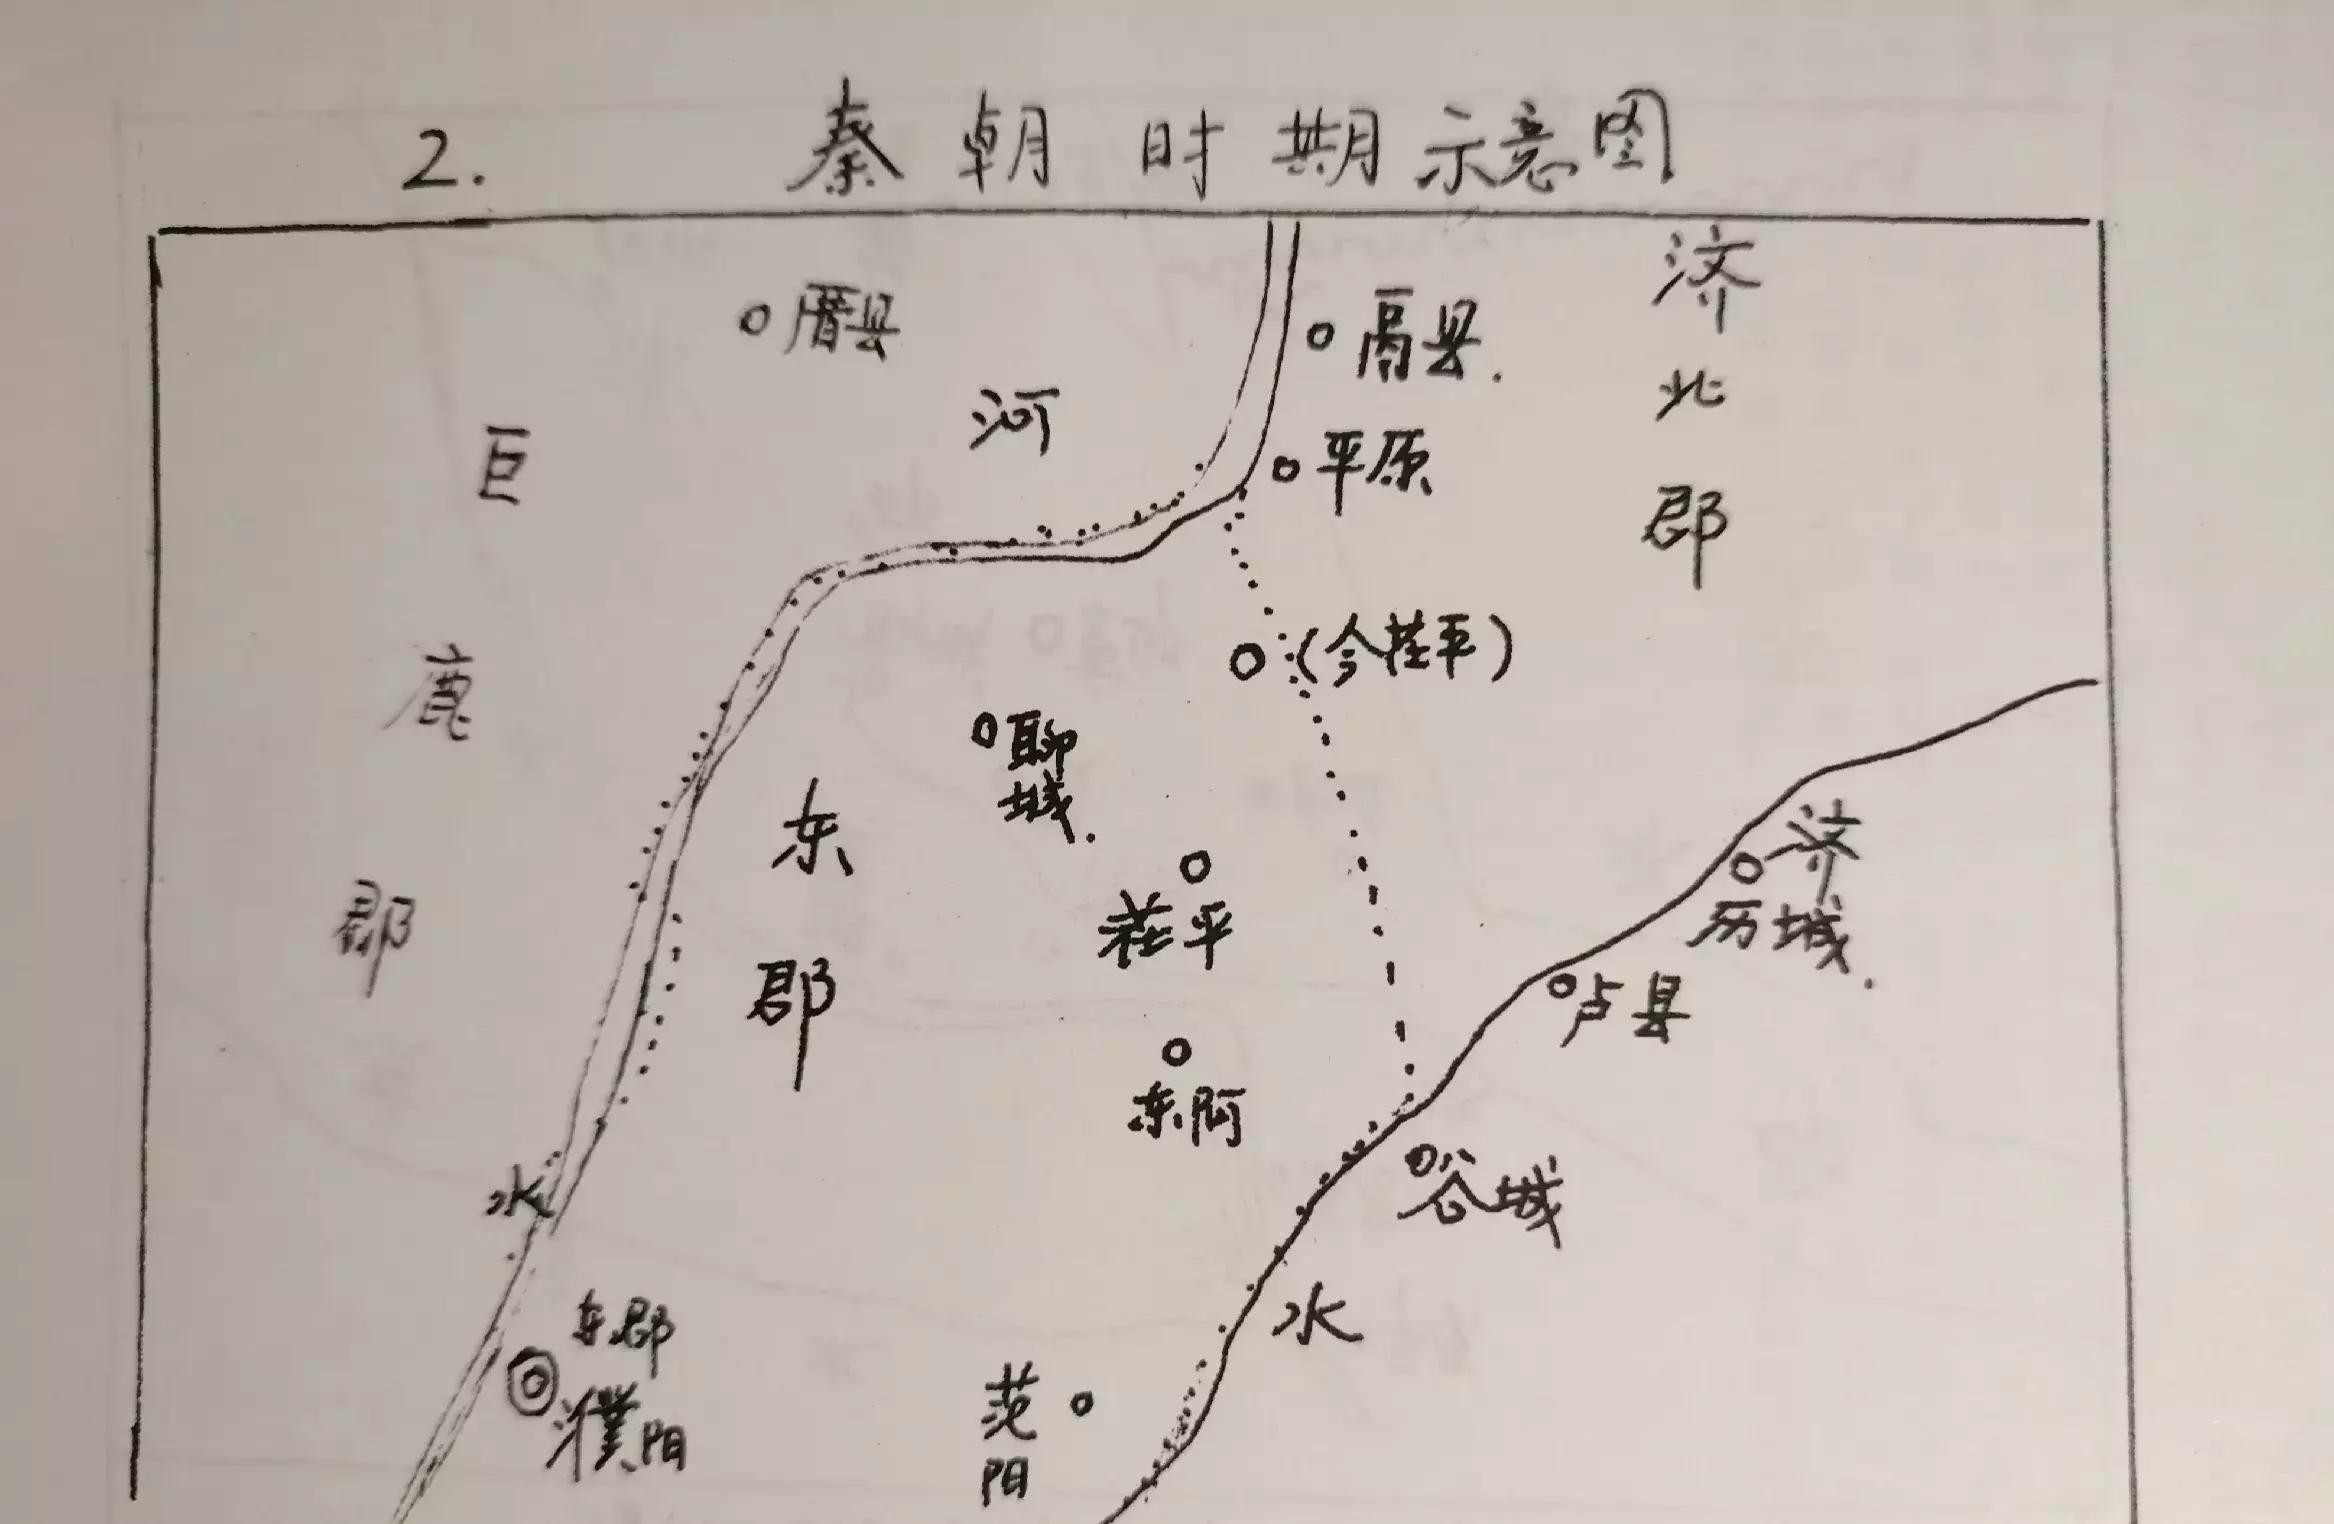 2. 秦朝时期示意图
厝县
鬲县.
济北郡
河
巨鹿郡
平原
(今茌平)
聊城.
东郡
茌平
济
历城.
卢县
东阿
水
谷城
水
东郡
濮阳
范阳